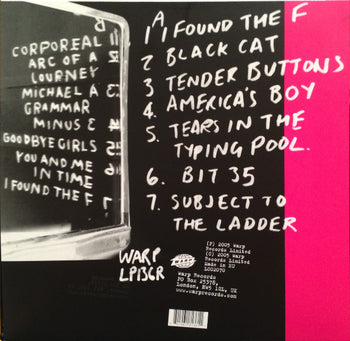 CORPOREAL
ARC OF A
LOURNEY
MICHAEL A
GRAMMAR
MINUS 3
GOODBYE GIRLS
YOU AND ME
IN TIME
I FOUND THE F
A
1 I FOUND THE F
2 BLACK CAT
3 TENDER BUTTONS
4. AMERICA'S BOY
5. TEARS IN THE
TYPING POOL.
6. BIT 35
7. SUBJECT TO
THE LADDER
WARP
LP136R
(P) 2005 Warp
Records Limited
(C) 2005 Warp
Records Limited
Made in EU
LC02070
Warp Records
PO Box 25378,
London, NW5 1GL, UK
www.warprecords.com